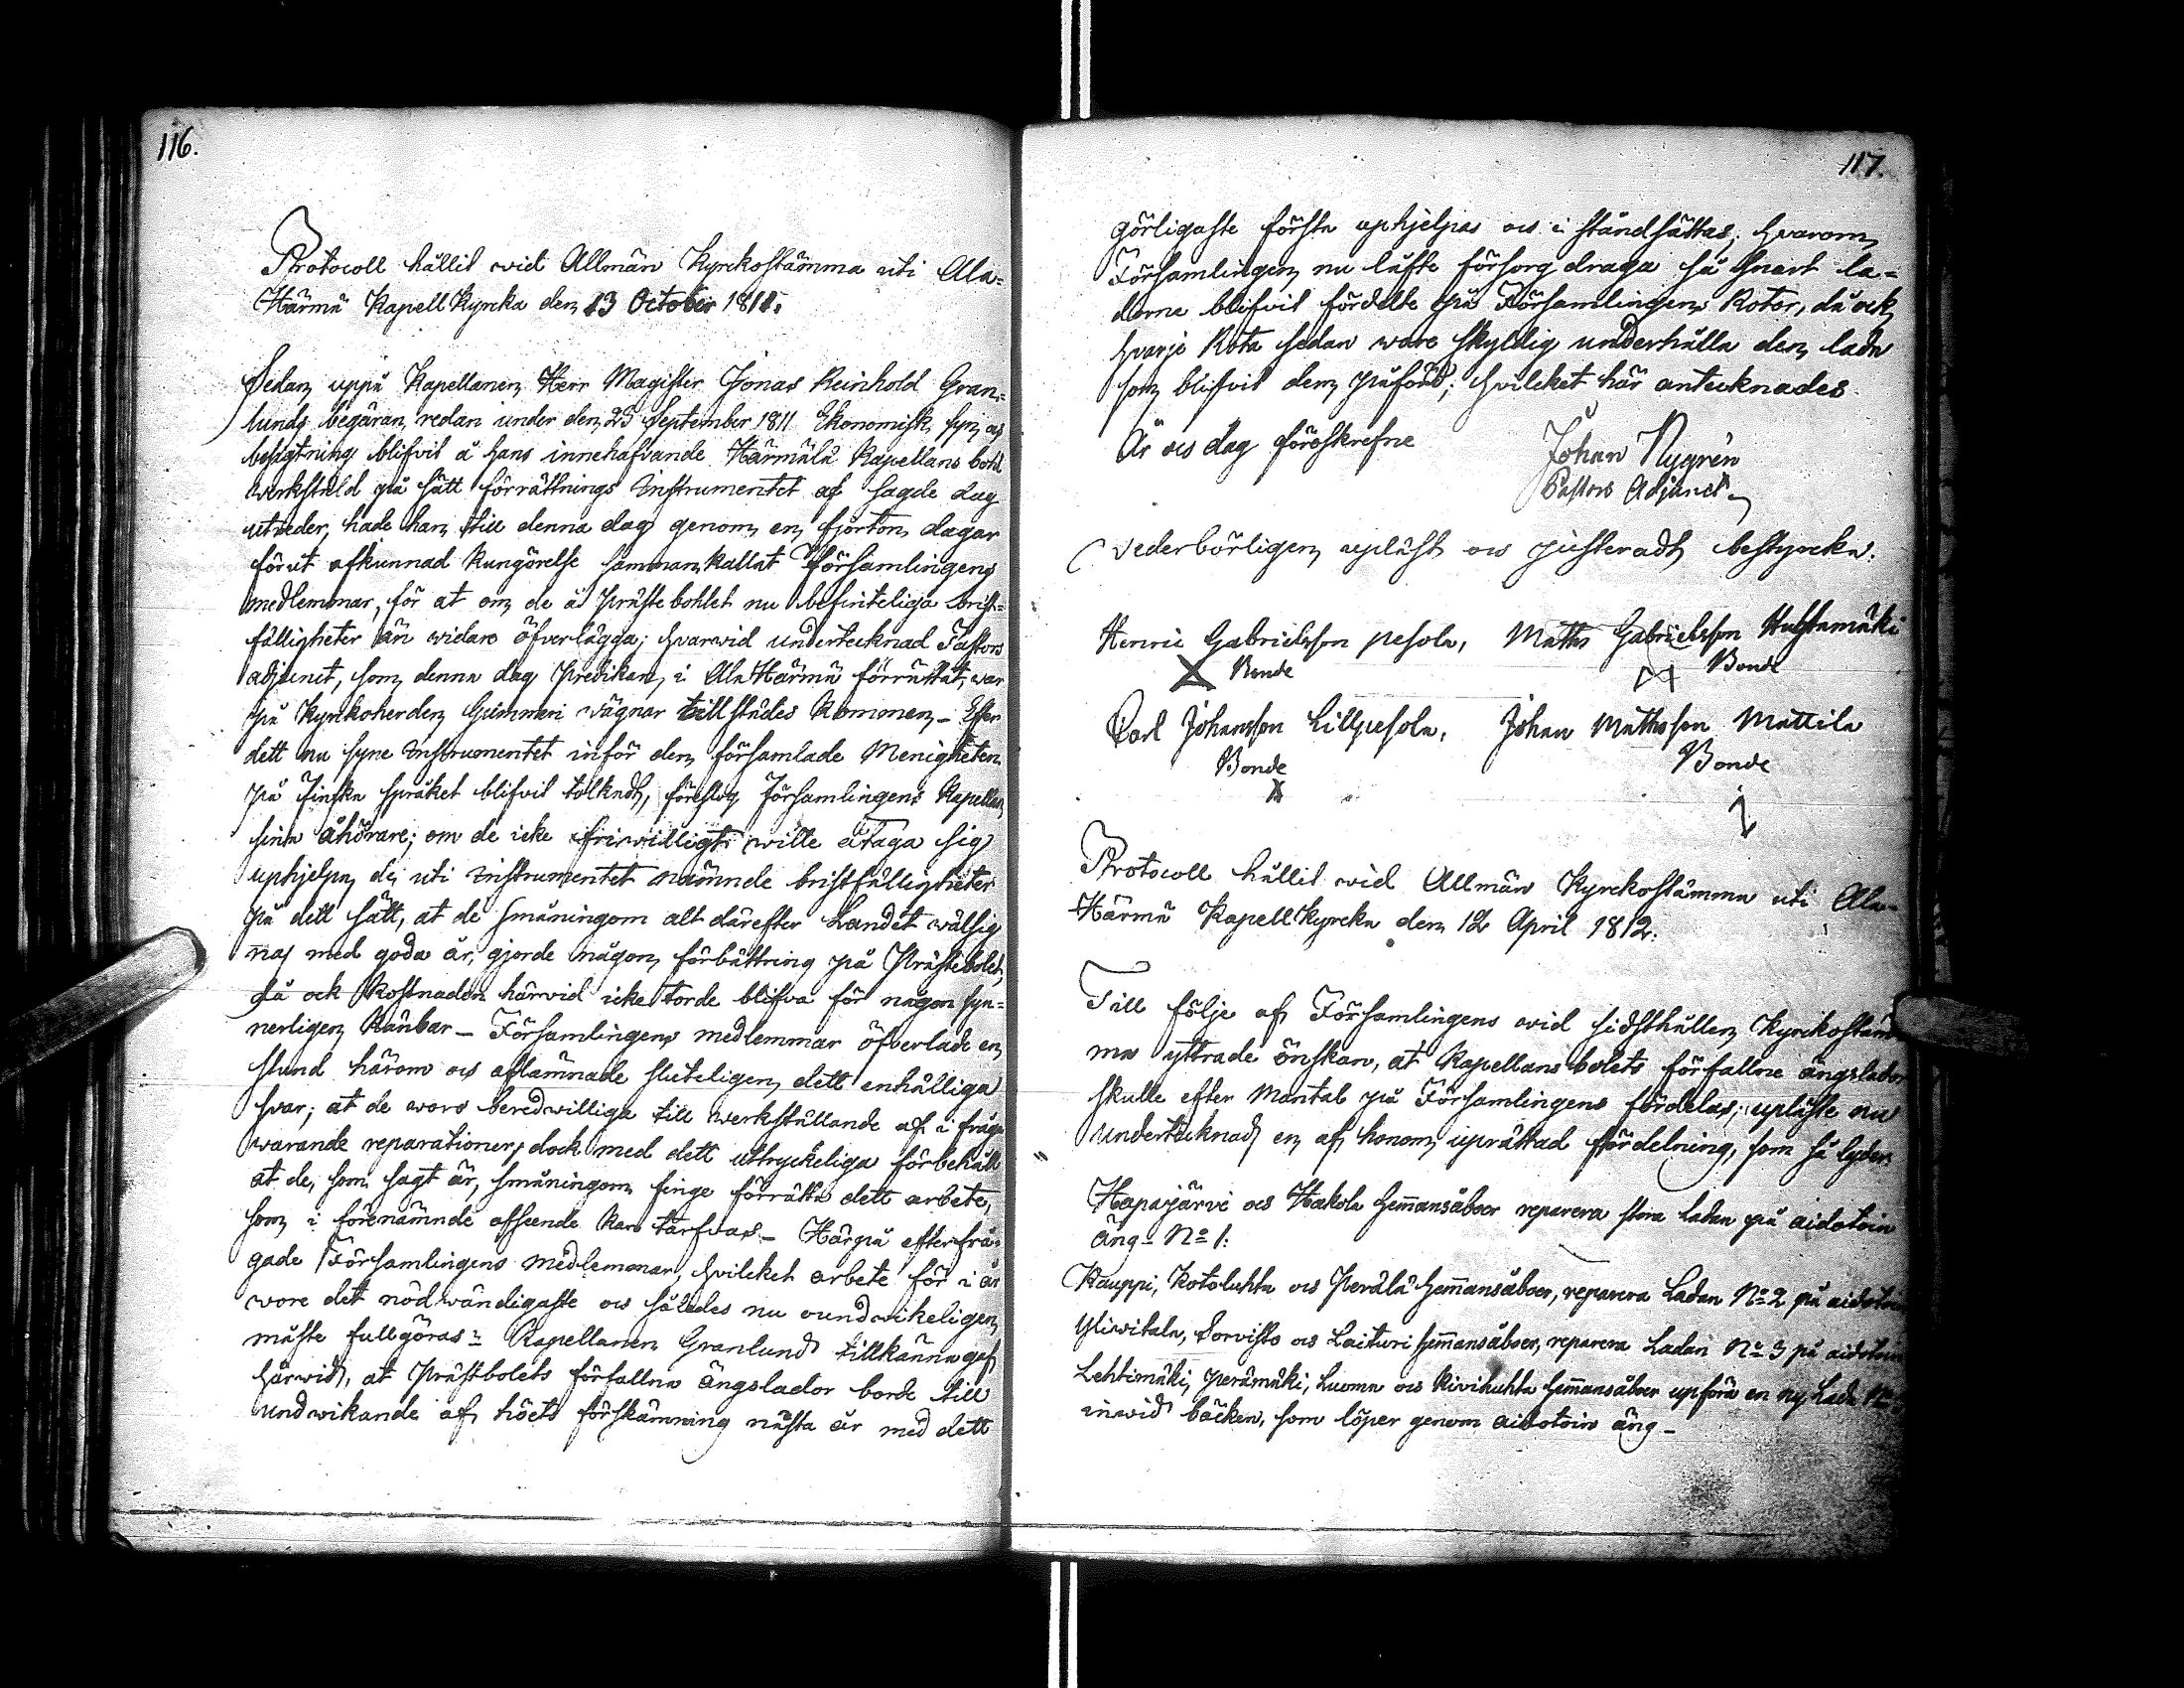 116.
Protocoll hållit wid Allmän Kyrckostämma uti Ala-
Härmä Kapell Kyrcka den 13 October 1811.
Sedan uppå Kapellanen Herr Magister Jonas Reinhold Gran-
lunds begäran redan under den 25 September 1811 Ekonomisk syn och
besigtning blifvit å hans innehafvande Härmälä Kapellans bohl
werkstäld på sätt förrättnings Instrumentet af sagde dag
utreder, hade han till denna dag genom en fjorton dagar
förut afkunnad kungörelse sammankallat Församlingens
medlemmar, för at om de å Prästebohlet nu befinteliga brist-
fälligheter än widare öfverlägga; hvarwid undertecknad Pastors
adjunct, som denna dag Predikan i Ala Härmä förrättat, war
på Kyrkoherden Gummeri vägnar tillstådes kommen – Efter
dett nu syne Instrumentet inför den församlade Menigheten
på Finska språket blifvit tolkadt, föreslog Församlingens Kapellan
sina åhörare; om de icke friwilligt wille åtaga sig
uphjelpa de uti Instrumentet nämnde bristfälligheter
på dett sätt, at de småningom alt därefter Landet wälsig-
nas med goda år, gjorde någon förbättring på Prästebolet,
då ock kostnaden härvid icke torde blifva för någon syn-
nerligen känbar – Församlingens medlemmar öfverlade en
stund härom och aflämnade sluteligen dett enhälliga
svar; at de woro beredwilliga till werkställande af i fråga
warande reparationer, dock med dett uttryckeliga förbehåll
at de, som sagt är, småningom finge förrätta dett arbete,
som i förenämnde afseende kan tarfvas – Härpå efterfrå-
gade Församlingens medlemmar, hvilcket arbete för i år
wore det nödwändigaste och således nu oundwikeligen
måste fullgöras: Kapellanen Granlund tillkännagaf
härwid, at Prästbolets förfallna ängslador borde till
undwikande af höets förskämning nästa år med dett
117.
görligaste första uphjelpas och i ståndsättas; hvarom
Församlingen nu låfte försorg draga så snart la-
dorne blifvit fördelte på Församlingens Rotor, då ock
hvarje Rota sedan wore skyldig underhålla den lada
som blifvit dem påförd; hvilcket här antecknades.
År och dag föreskrefne
Johan Nygrén
Pastors Adjunct
Vederbörligen upläst och justeradt bestyrcka:
Henric Gabrielsson Pesola, Matts Gabrielsson Huhtamäki
Bonde Bonde
Carl Johansson Lillpesola, Johan Mathsson Mattila
Bonde Bonde
Protocoll hållit wid Allmän Kyrckostämma uti Ala-
Härmä Kapell Kyrcka den 12 April 1812.
Till följe af Församlingens wid sidsthållen Kyrckostäm-
ma yttrade önskan, at Kapellans bolets förfallne ängslador
skulle efter Mantal på Församlingens fördelas; upläste nu
undertecknad en af honom uprättad fördelning, som så lyder:
Haparjärvi och Hakola Hemmansåboer reparera stora Ladan på aidotoin
äng – No 1:
Kauppi, Kotoluhta och Perälä Hemmansåboer, reparera Ladan No 2 på aidotoin
Yliwitala, Sorvisto och Laituri Hemmansåboer, reparera Ladan No 3 på aidotoin
Lehtimäki, Perämäki, Luoma och Kivihuhta Hemmansåboer upföra en ny Lada No
inwid bäcken, som löper genom aidotoin äng –